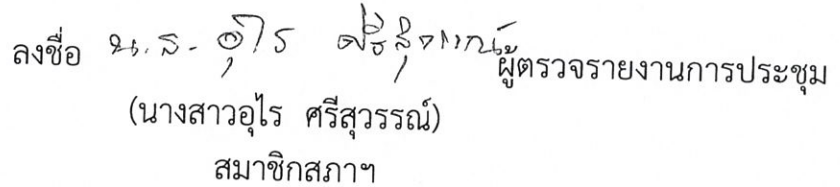 ลงชื่อ น.ส. อุไร ศรีสุวรรณ์ ผู้ตรวจรายงานการประชุม
(นางสาวอุไร ศรีสุวรรณ์)
สมาชิกสภาฯ